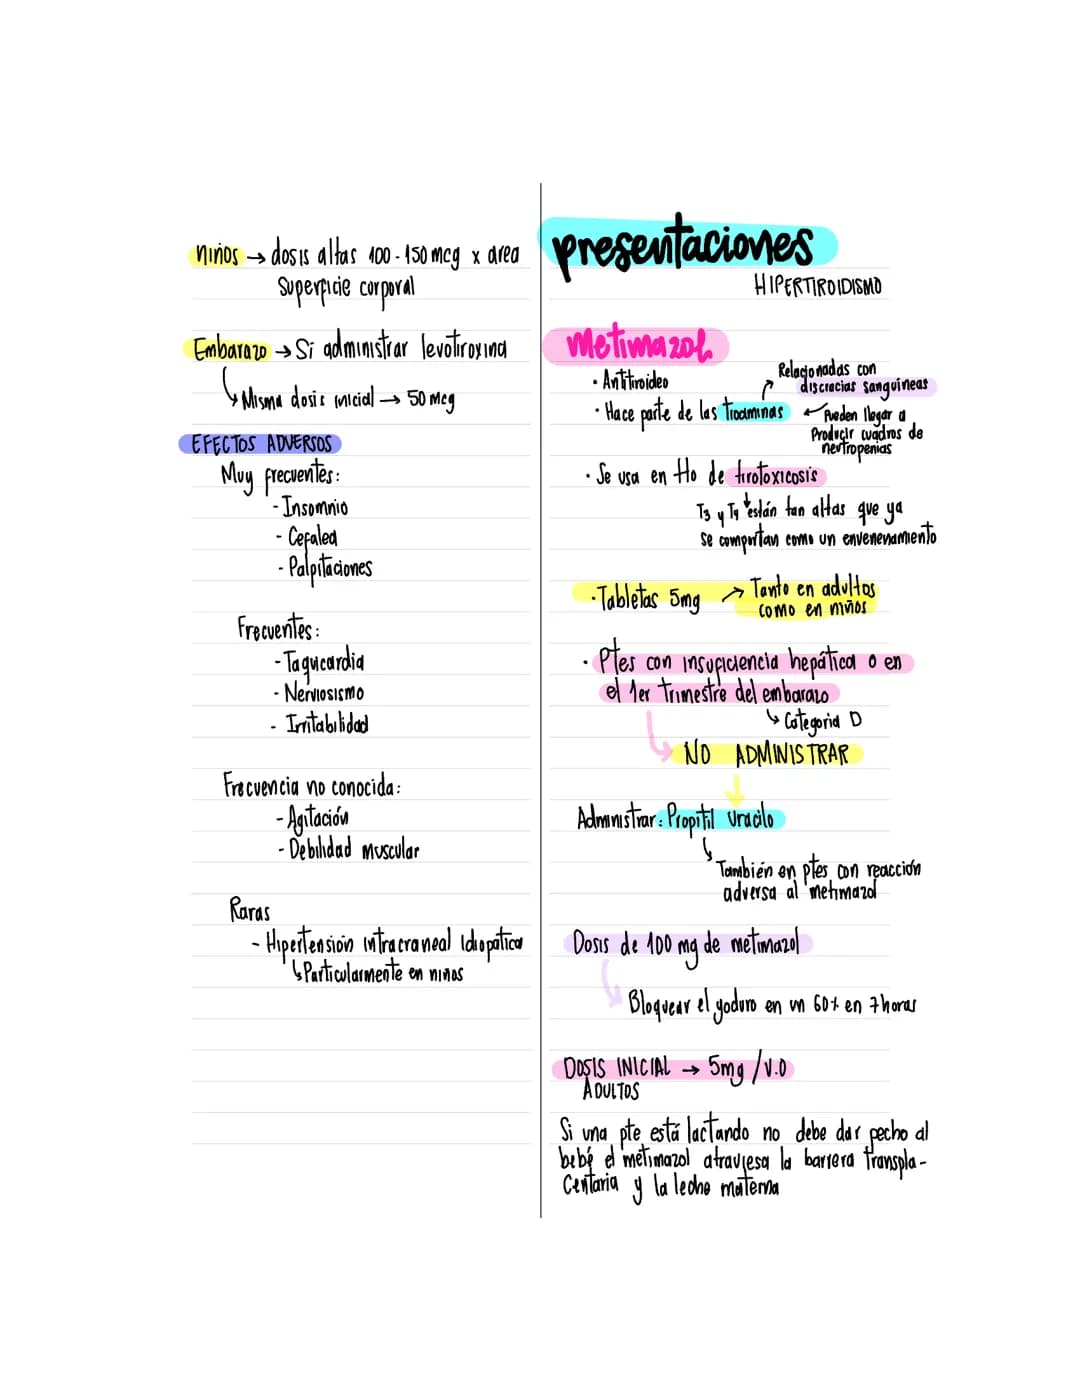 niños → dosis altas 100-150 mcg x area
Superficie corporal
Embarazo → Si administrar levotiroxina
↳ Misma dosis inicial → 50 mcg
EFECTOS ADVERSOS
Muy frecuentes:
- Insomnio
- Cefalea
- Palpitaciones
Frecuentes:
- Taquicardia
- Nerviosismo
- Irritabilidad
Frecuencia no conocida:
- Agitación
- Debilidad muscular
Raras
- Hipertensión intracraneal Idiopática
↳ Particularmente en niños
presentaciones
HIPERTIROIDISMO
Metimazol
· Antitiroideo
· Hace parte de las Tioaminas
Relacionadas con
discracias sanguineas
Pueden llegar a
Producir cuadros de
neutropenias
· Se usa en tto de tirotoxicosis
T3 y T4 están tan altas que ya
se comportan como un envenenamiento
· Tabletas 5mg → Tanto en adultos
como en niños
· Ptes con insuficiencia hepática o en
el 1er Trimestre del embarazo
↳ Categoria D
NO ADMINISTRAR
Administrar: Propitil uracilo
También en ptes con reacción
adversa al metimazol
Dosis de 100 mg de metimazol
Bloquear el yoduro en un 60% en 7 horas
DOSIS INICIAL → 5mg / V.O
ADULTOS
Si una pte está lactando no debe dar pecho al
bebé el metimazol atraviesa la barrera transpla-
centaria y la leche materna